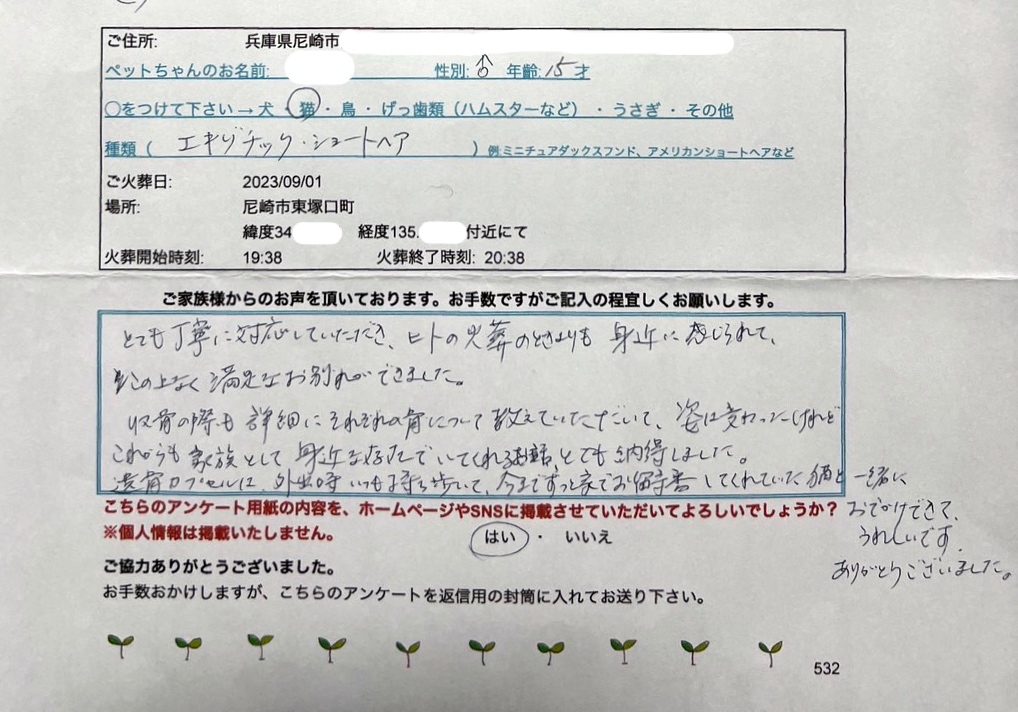 ご住所: 兵庫県尼崎市
ペットちゃんのお名前: 性別:♂ 年齢:15才
〇をつけて下さい→犬・猫・鳥・げっ歯類（ハムスターなど）・うさぎ・その他
種類（ エキゾチック・ショートヘア ）例:ミニチュアダックスフンド、アメリカンショートヘアなど
ご火葬日: 2023/09/01
場所: 尼崎市東塚口町
緯度34 経度135. 付近にて
火葬開始時刻: 19:38 火葬終了時刻: 20:38
ご家族様からのお声を頂いております。お手数ですがご記入の程宜しくお願いします。
とても丁寧に対応していただき、ヒトの火葬のときよりも身近に感じられて、
この上なく満足なお別れができました。
収骨の際も詳細にそれぞれの骨について教えていただいて、姿は変わったけれど
これからも家族として身近な存在でいてくれる、とても納得しました。
遺骨カプセルは、外出時いつも持ち歩いて、今まずっと家でお留守番してくれていた猫と一緒に
おでかけできて、
うれしいです。
ありがとうございました。
こちらのアンケート用紙の内容を、ホームページやSNSに掲載させていただいてよろしいでしょうか？
※個人情報は掲載いたしません。 はい ・ いいえ
ご協力ありがとうございました。
お手数おかけしますが、こちらのアンケートを返信用の封筒に入れてお送り下さい。
532